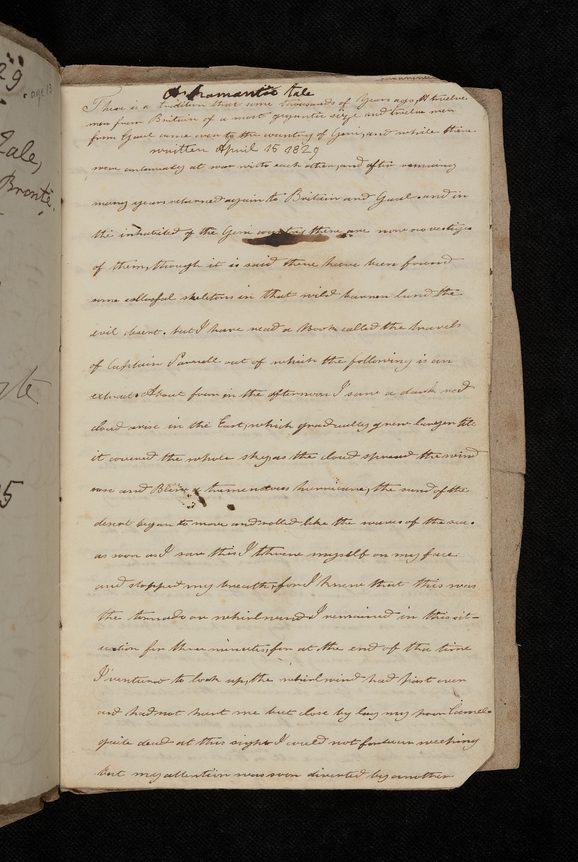 29
age 13
Tale,
Bronté.
5
A Romantic tale
There is a tradition that some thousands of years ago, 12 twelve
men from Britain of a most gigantic size and twelve men
from Gaul came over to the country of Genii, and while there
written April 15 1829
were continualy at war with each other, and after remaining
many years returned again to Britain and Gaul and in
the inhabited of the Genii countries there are now no vestiges
of them, though it is said there have been found
some collosal skeletons in that wild barren land the
evil desert. but I have read a Book called the travels
of Captain Parnell out of which the following is an
extract. About four in the afternoon I saw a dark red
cloud arise in the East, which gradually grew larger till
it covered the whole sky, as the cloud spread the wind
rose and Blew a tremendous hurricane, the sand of the
desert began to move and rolled like the waves of the sea.
as soon as I saw this I threw myself on my face
and stopped my breath, for I knew that this was
the tornado or whirlwind I remained in this sit-
uation for three minutes, for at the end of tha time
I ventured to look up, the whirlwind had past over
and had not hurt me but close by lay my poor Camel
quite dead at this sight I could not forbear weeping
but my attention was soon diverted by another